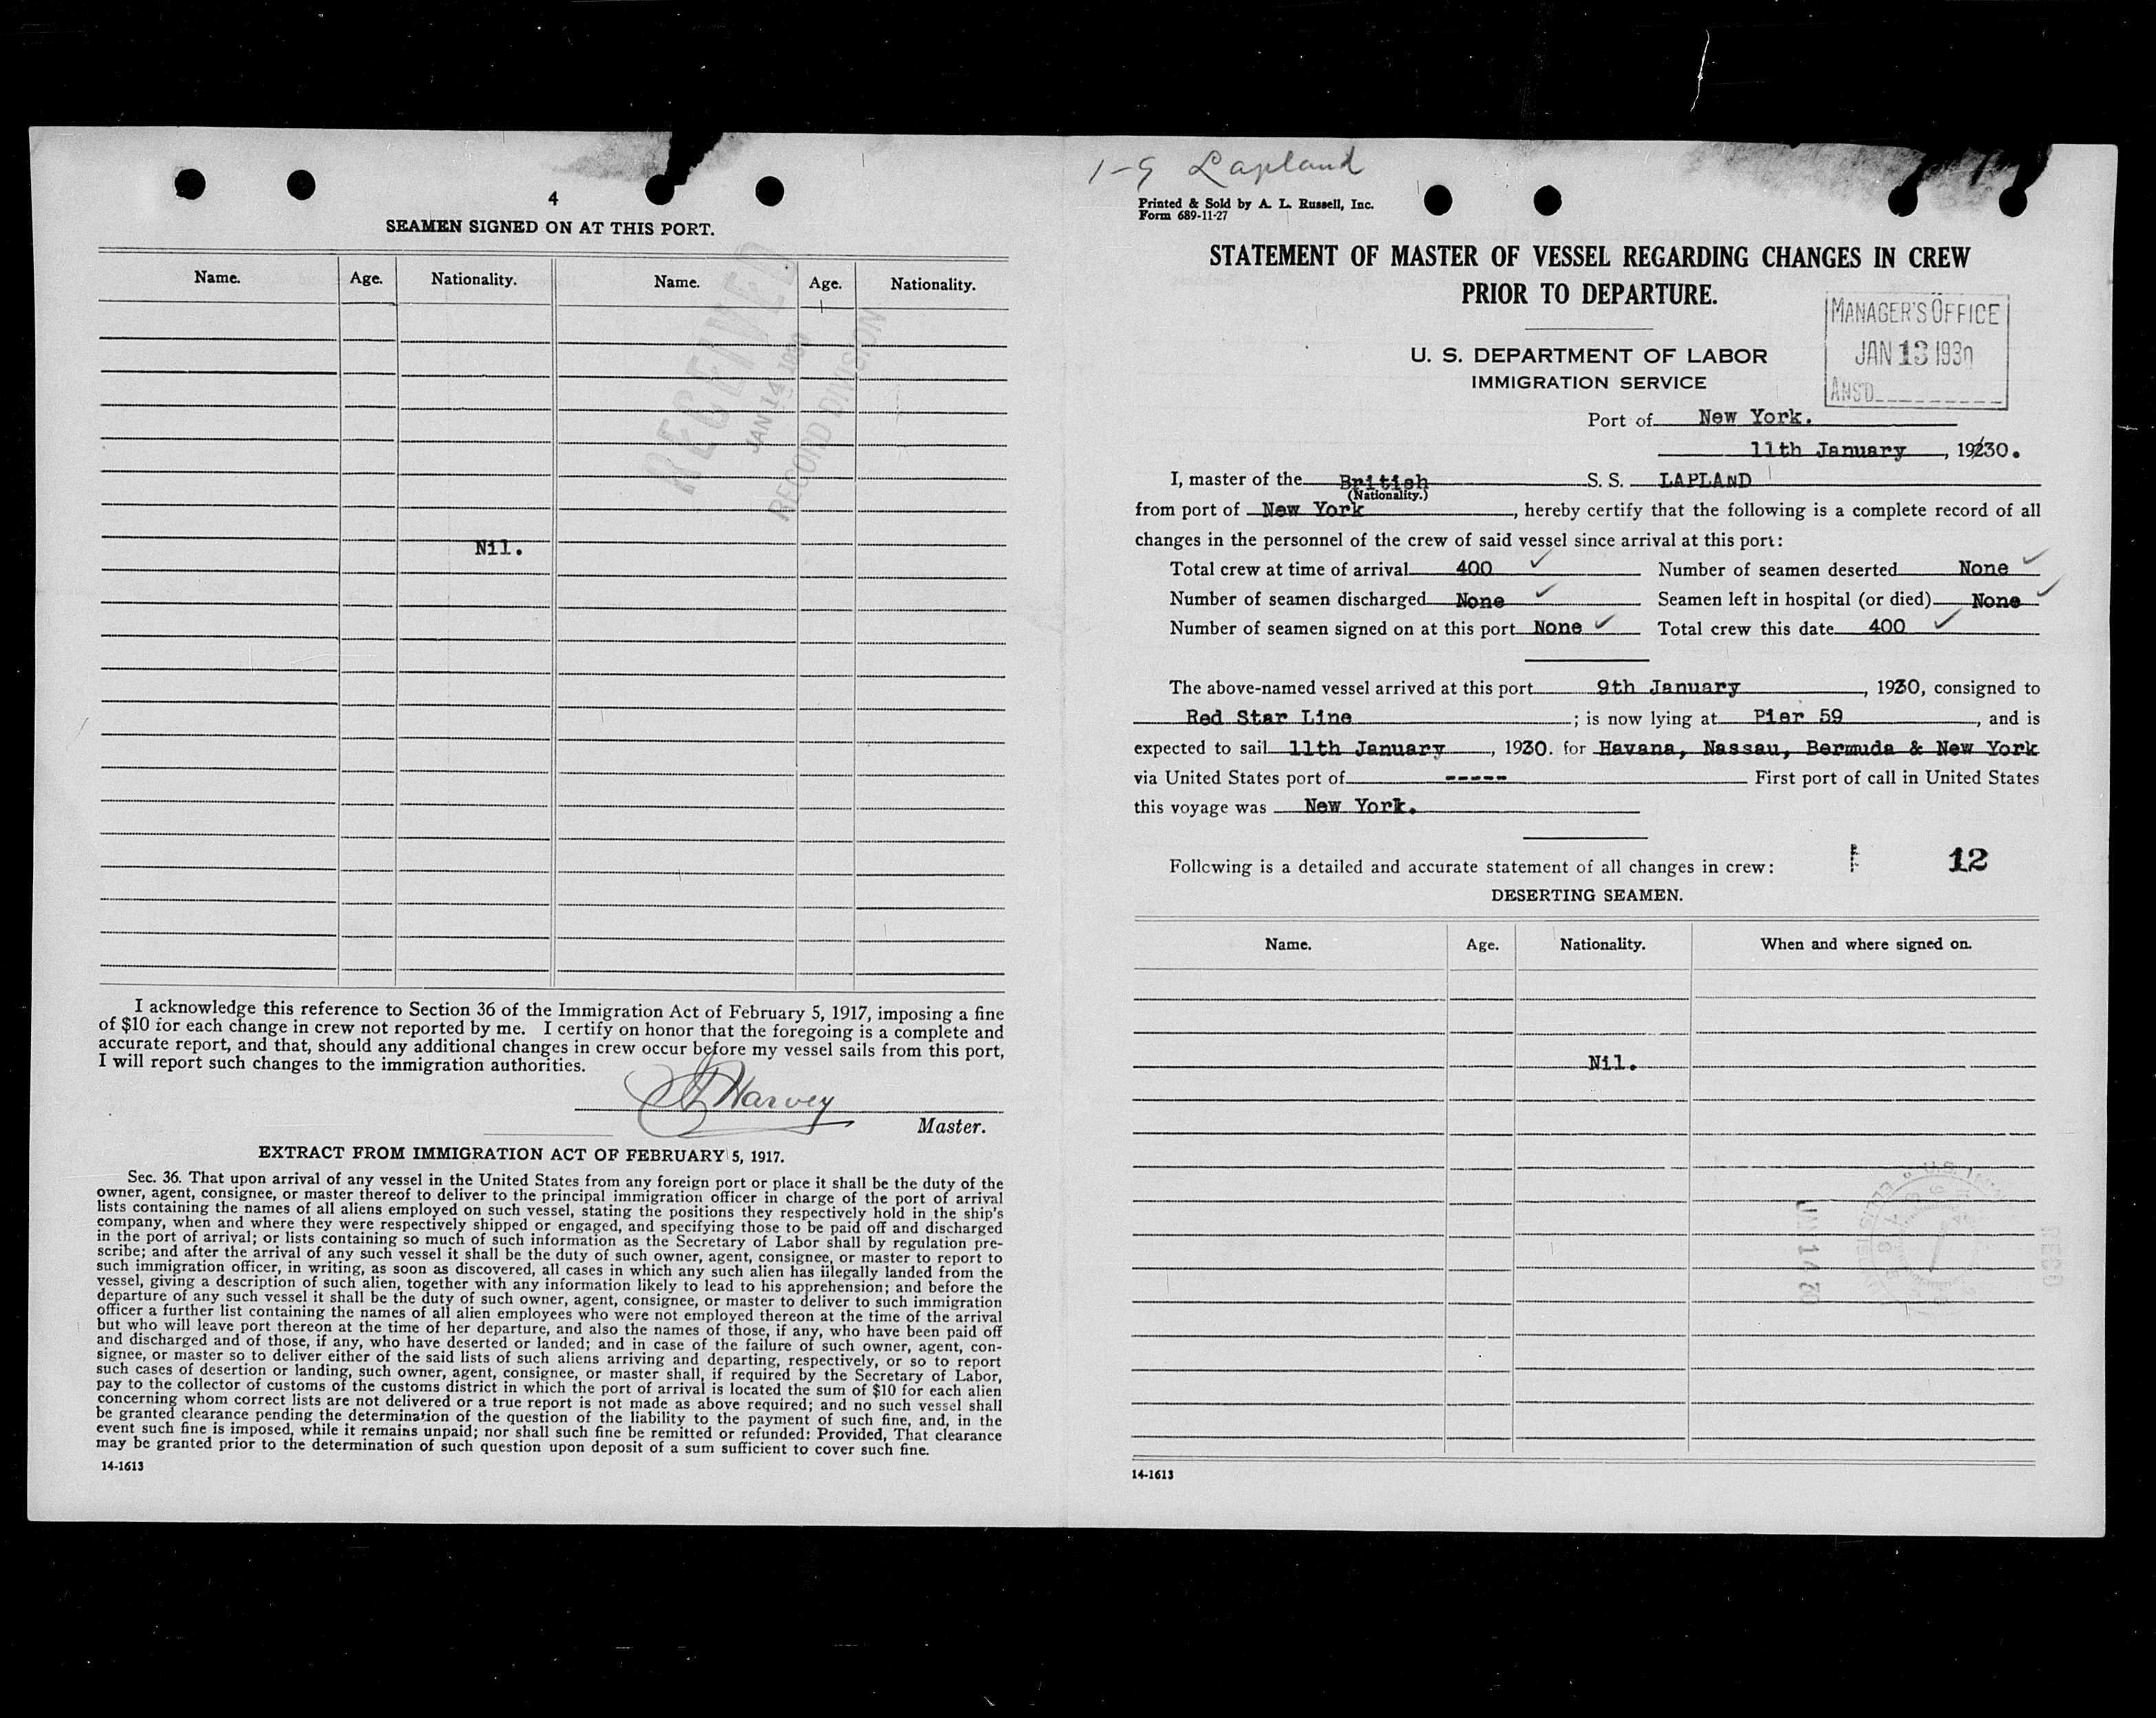 4
SEAMEN SIGNED ON AT THIS PORT.
Name. Age. Nationality. Name. Age. Nationality.
RECEIVED
JAN 14 1930
RECORD DIVISION
Nil.
I acknowledge this reference to Section 36 of the Immigration Act of February 5, 1917, imposing a fine
of $10 for each change in crew not reported by me. I certify on honor that the foregoing is a complete and
accurate report, and that, should any additional changes in crew occur before my vessel sails from this port,
I will report such changes to the immigration authorities.
Harvey
Master.
EXTRACT FROM IMMIGRATION ACT OF FEBRUARY 5, 1917.
Sec. 36. That upon arrival of any vessel in the United States from any foreign port or place it shall be the duty of the
owner, agent, consignee, or master thereof to deliver to the principal immigration officer in charge of the port of arrival
lists containing the names of all aliens employed on such vessel, stating the positions they respectively hold in the ship's
company, when and where they were respectively shipped or engaged, and specifying those to be paid off and discharged
in the port of arrival; or lists containing so much of such information as the Secretary of Labor shall by regulation pre-
scribe; and after the arrival of any such vessel it shall be the duty of such owner, agent, consignee, or master to report to
such immigration officer, in writing, as soon as discovered, all cases in which any such alien has illegally landed from the
vessel, giving a description of such alien, together with any information likely to lead to his apprehension; and before the
departure of any such vessel it shall be the duty of such owner, agent, consignee, or master to deliver to such immigration
officer a further list containing the names of all alien employees who were not employed thereon at the time of the arrival
but who will leave port thereon at the time of her departure, and also the names of those, if any, who have been paid off
and discharged and of those, if any, who have deserted or landed; and in case of the failure of such owner, agent, con-
signee, or master so to deliver either of the said lists of such aliens arriving and departing, respectively, or so to report
such cases of desertion or landing, such owner, agent, consignee, or master shall, if required by the Secretary of Labor,
pay to the collector of customs of the customs district in which the port of arrival is located the sum of $10 for each alien
concerning whom correct lists are not delivered or a true report is not made as above required; and no such vessel shall
be granted clearance pending the determination of the question of the liability to the payment of such fine, and, in the
event such fine is imposed, while it remains unpaid; nor shall such fine be remitted or refunded: Provided, That clearance
may be granted prior to the determination of such question upon deposit of a sum sufficient to cover such fine.
14-1613
1-9 Lapland
Printed & Sold by A. L. Russell, Inc.
Form 689-11-27
STATEMENT OF MASTER OF VESSEL REGARDING CHANGES IN CREW
PRIOR TO DEPARTURE.
MANAGER'S OFFICE
JAN 13 1930
ANS'D
U. S. DEPARTMENT OF LABOR
IMMIGRATION SERVICE
Port of New York.
11th January, 1930.
I, master of the British S. S. LAPLAND
(Nationality.)
from port of New York, hereby certify that the following is a complete record of all
changes in the personnel of the crew of said vessel since arrival at this port:
Total crew at time of arrival 400 ✓ Number of seamen deserted None ✓
Number of seamen discharged None ✓ Seamen left in hospital (or died) None ✓
Number of seamen signed on at this port None ✓ Total crew this date 400 ✓
The above-named vessel arrived at this port 9th January, 1930, consigned to
Red Star Line; is now lying at Pier 59, and is
expected to sail 11th January, 1930. for Havana, Nassau, Bermuda & New York
via United States port of ----- First port of call in United States
this voyage was New York.
Following is a detailed and accurate statement of all changes in crew: 12
DESERTING SEAMEN.
Name. Age. Nationality. When and where signed on.
Nil.
14-1613